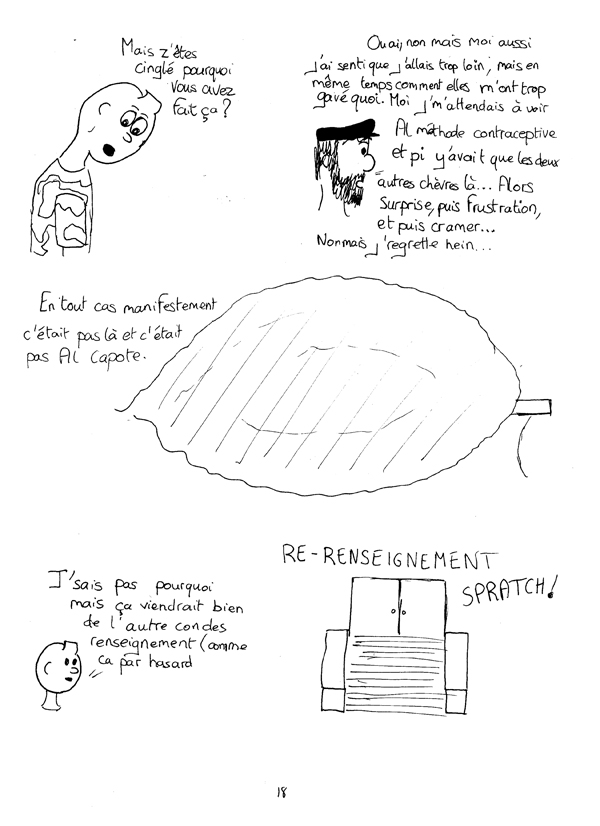 Mais z'êtes
cinglé pourquoi
vous avez
fait ça?
Ouai, non mais moi aussi
j'ai senti que j'allais trop loin, mais en
même temps comment elles m'ont trop
gavé quoi. Moi j'm'attendais à voir
Al méthode contraceptive
et pi y'avait que les deux
autres chèvres là... Alors
Surprise, puis frustration,
et puis cramer...
Non mais j'regrette hein...
En tout cas manifestement
c'était pas là et c'était
pas Al Capote.
J'sais pas pourquoi
mais ça viendrait bien
de l'autre con des
renseignement (comme
ca par hasard
RE-RENSEIGNEMENT
SPRATCH!
18